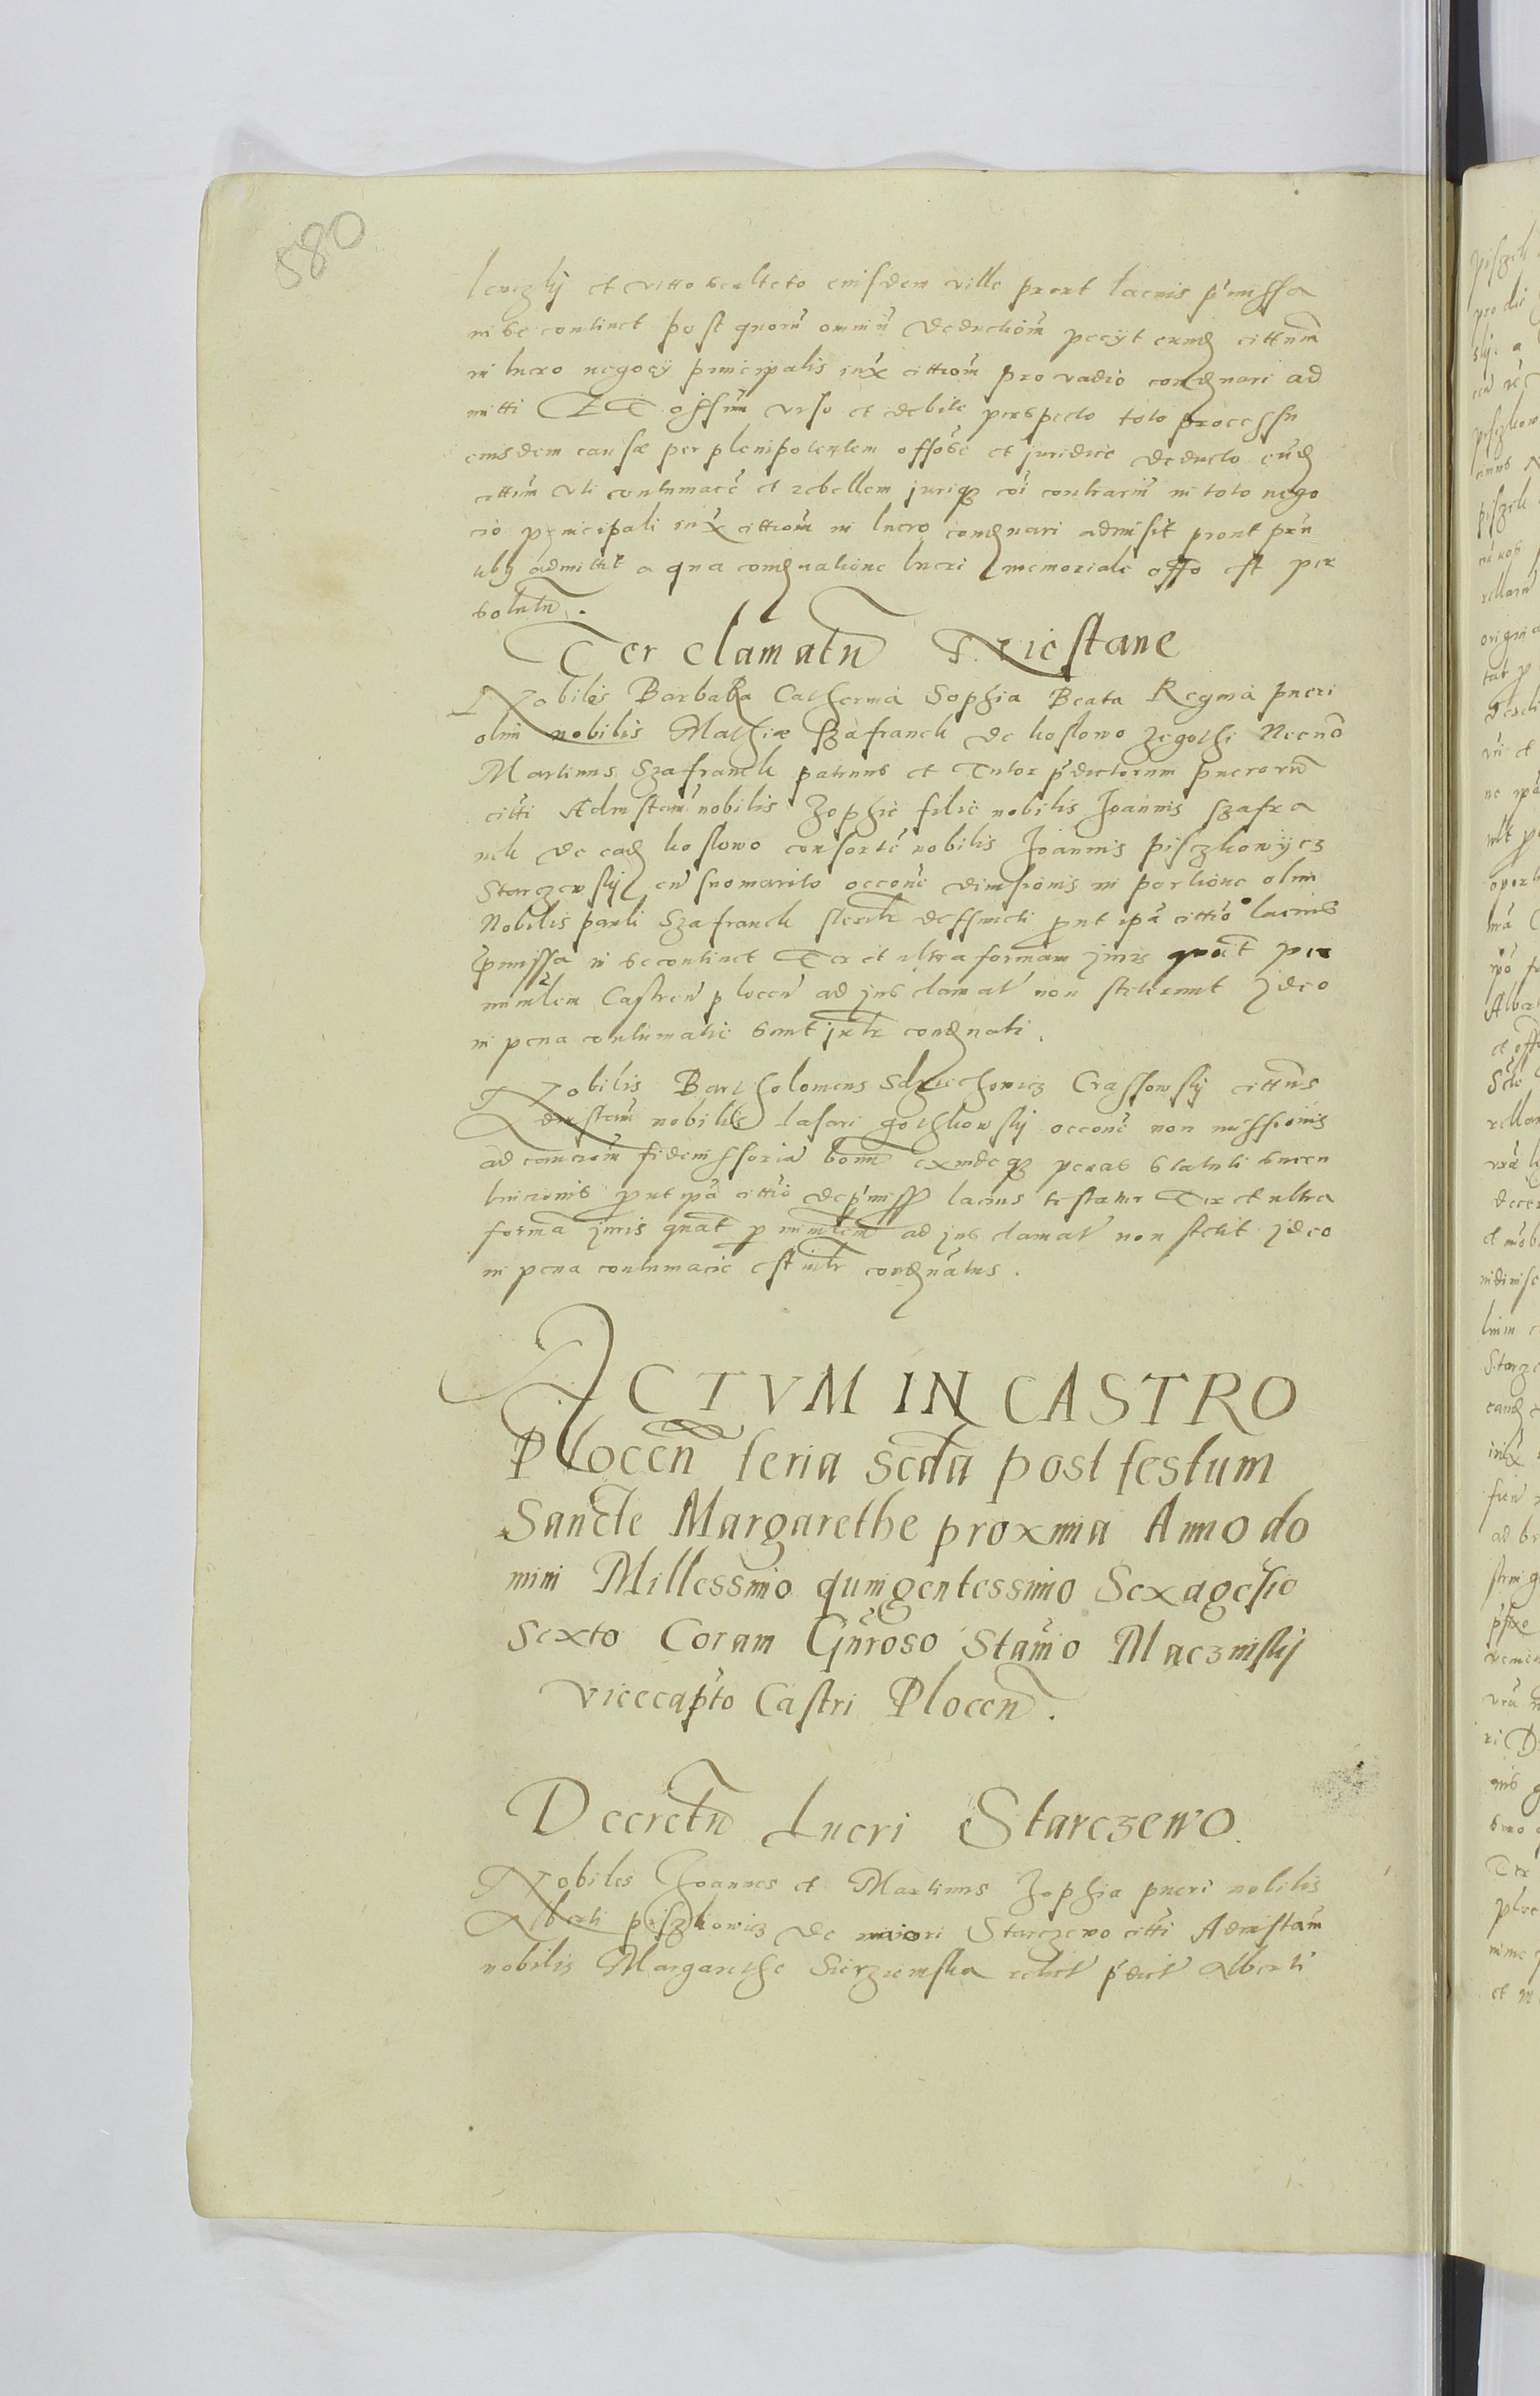 580
lenczky et vitto sculteto eiusdem ville prout lacius p'missa
in se continet post quoru omniu deductiom pecyt eund cittum
in lucro negocy principalis iux cittiom pro vadio condnari ad
mitti ET offim viso et debite perspecto toto processu
eiusdem causæ per plenipotentem offose et juridice deducto eund
cittum vti contumace et rebellem juriq coi contrariu in toto nego
cio principali iux cittiom in lucro condnari admisit prout prn
tibq admittit a qua condnatione lucri memoriale offo est per
solutu.
Ter clamatu Nie stane
Nobiles Barbara Catherina Sophia Beata Regina pueri
olim nobilis Mathiæ Szafranek de koslowo zegothi Necno
Martinus Szafranek patruus et Tutor p'dictorum puerorum
citti Ad instam nobilis Zophie filie nobilis Joannis szafra
nek de ead koslowo consorte nobilis Joannis pisczkowycz
Starczewsky cu suo marito occone divisionis in portione olim
Nobilis pauli Szafranek sterilr deffuncti put ipa cittio lacius
pmissa in se continet Ter et ultra formam juris quat per
minlem Castren plocen ad jus clamat' non steterunt jdeo
in pena contumatie sunt jntr condnati.
Nobilis Bartholomeus Crassowsky cittus
Ad instam nobilis lasari gothkowsky occone non missionis
ad canciom fideiussoria bonu exindeq penas statuti succu
buicionis put ipa cittio de p'miss lacius testatur Ter et ultra
forma juris quat p minlem ad jus clamat' non stetit jdeo
in pena contumacie est intr condnatus.
ACTVM IN CASTRO
Plocen feria scda post festum
Sancte Margarethe proxima Anno do
mini Millessimo quingentessimo Sexagesio
Sexto Coram Gnroso Stanio Maczinsky
vicecapto Castri Plocen.
Decretu Lucri Starczewo.
Nobiles Joannes et Martinus Zophia pueri nobilis
Alberti piszkowicz de maiori Starczewo citti Ad instam
nobilis Margarethe Sierzienska relict' p'dict' Alberti